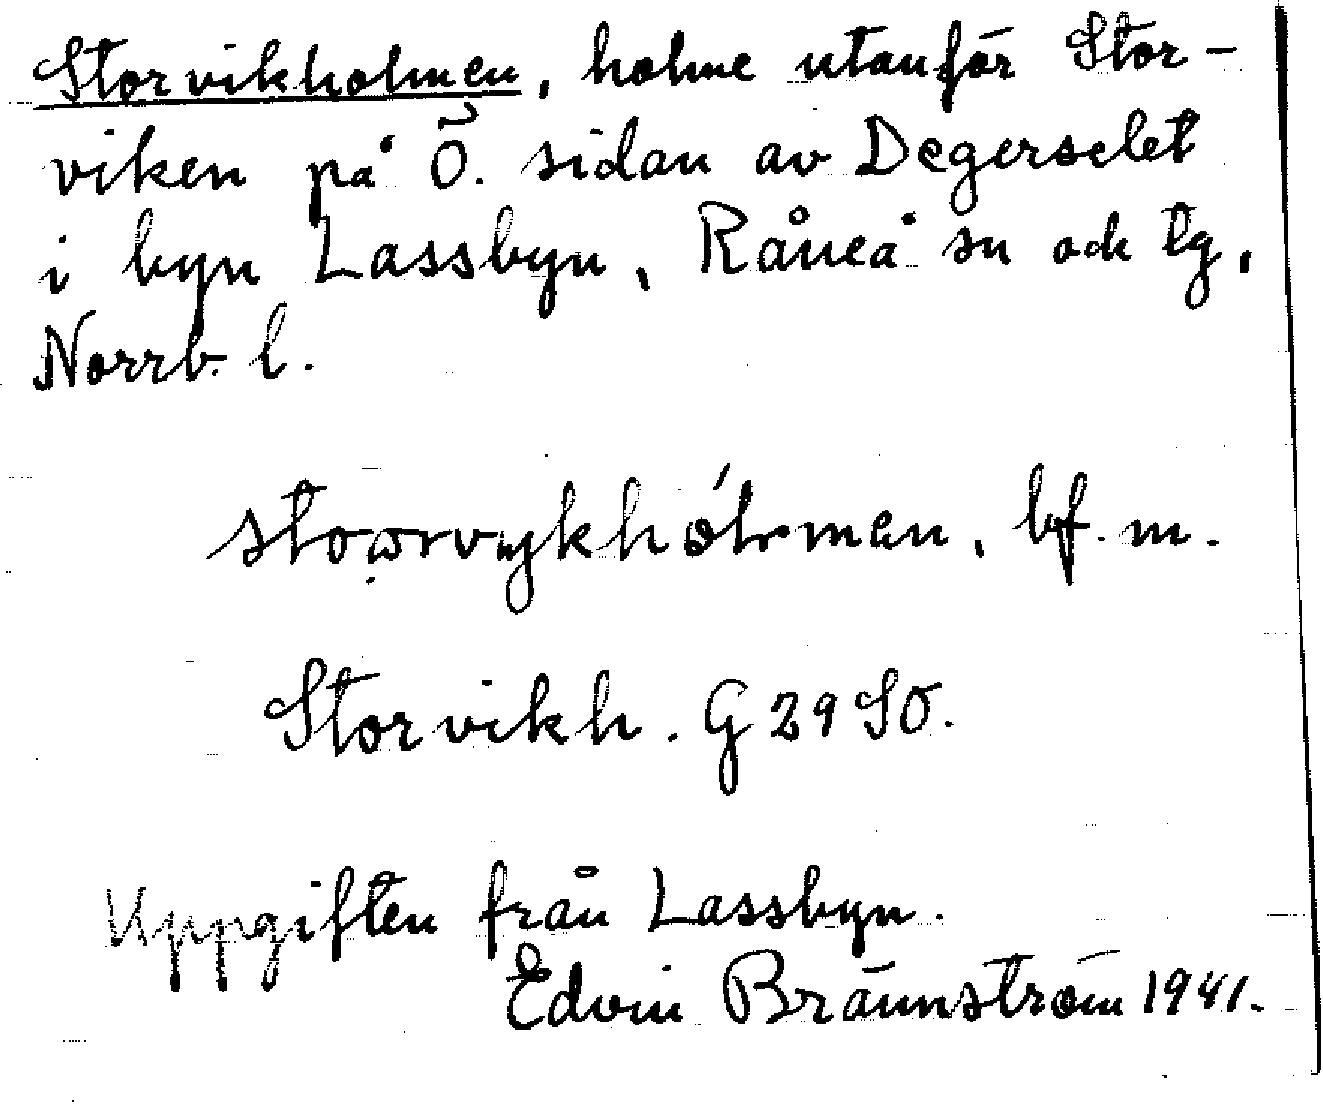 Storvikholmen, holme utanför Stor-
viken på Ö. sidan av Degerselet
i byn Lassbyn, Råneå sn ock tg,
Norrb. l.
bf. m.
Storvikh. G 29 SO.
Uppgiften från Lassbyn.
Edvin Brännström 1941.